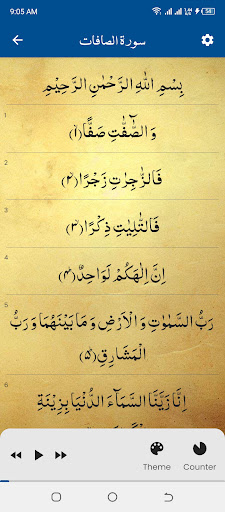 9:05 AM
58
سورۃ الصافات
بِسْمِ اللّٰهِ الرَّحْمٰنِ الرَّحِيْمِ
وَالصّٰٓفّٰتِ صَفًّا ﴿۱﴾
2
فَالزّٰجِرٰتِ زَجْرًا ﴿۲﴾
3
فَالتّٰلِيٰتِ ذِكْرًا ﴿۳﴾
4
اِنَّ اِلٰهَكُمْ لَوَاحِدٌ ﴿۴﴾
5
رَبُّ السَّمٰوٰتِ وَالْاَرْضِ وَمَا بَيْنَهُمَا وَرَبُّ
الْمَشَارِقِ ﴿۵﴾
6
اِنَّا زَيَّنَّا السَّمَآءَ الدُّنْيَا بِزِيْنَةِ
Theme
Counter